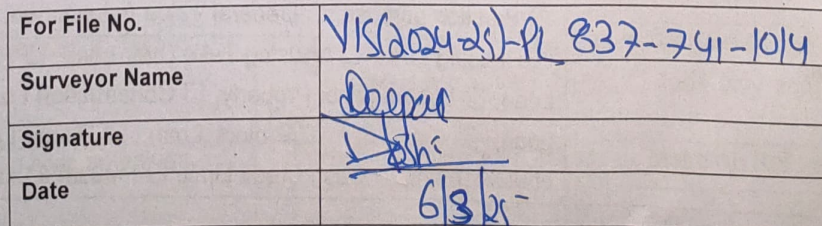 For File No. VIS(2024-25)-PL 837-741-1014
Surveyor Name Deepak
Signature
Date 6/3/25